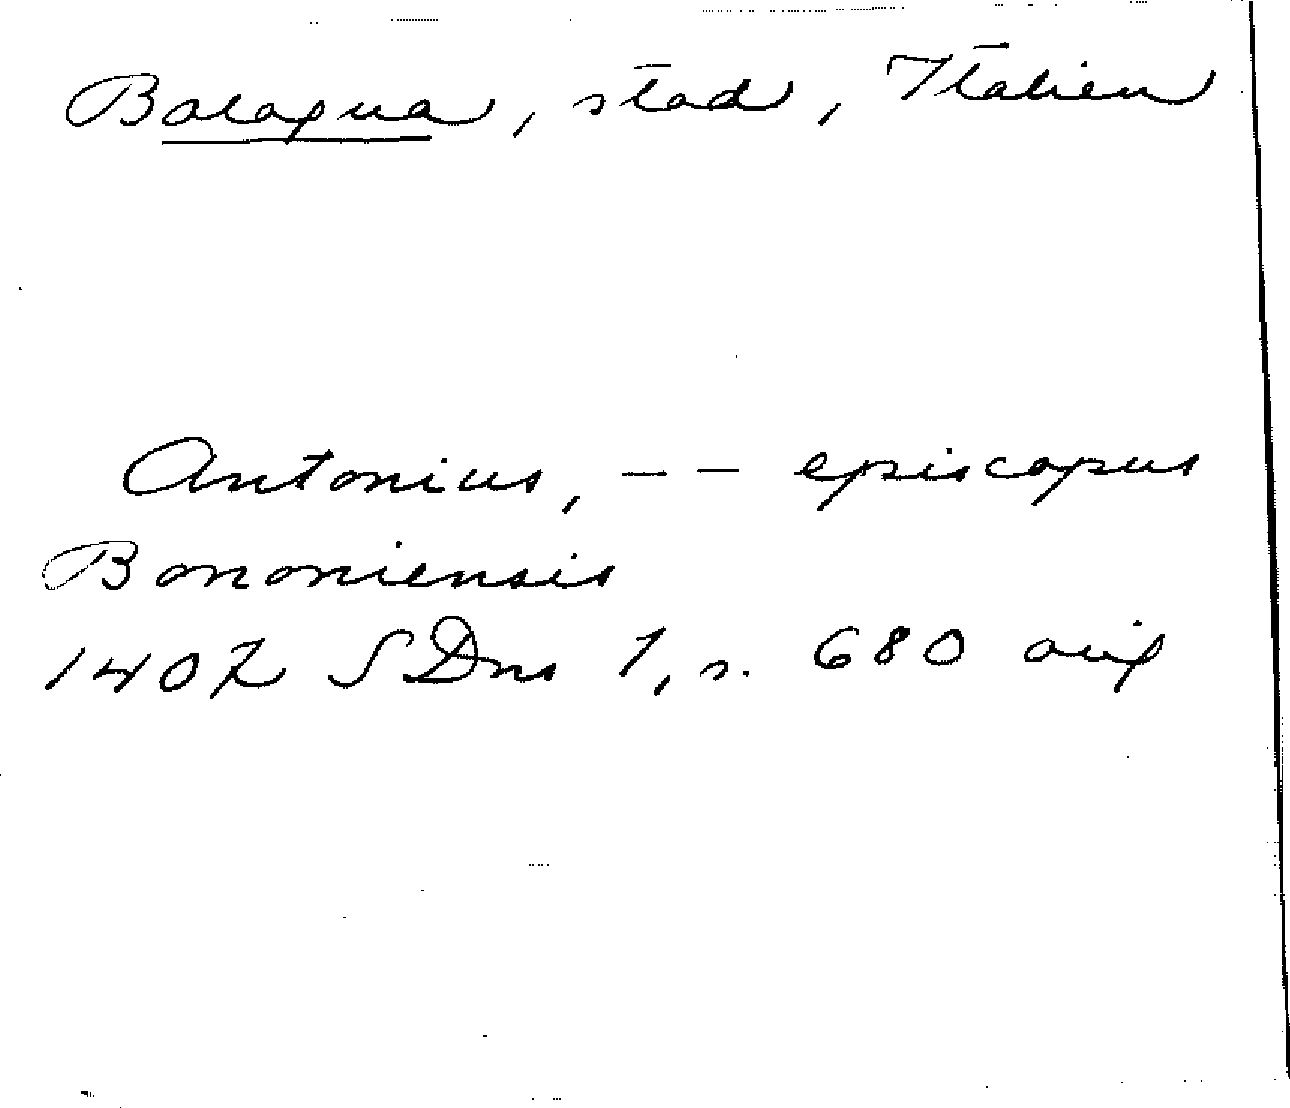 Bologna, stad, Italien
Antonius, -- episcopus
Bononiensis
1407 SDns 1, s. 680 orig